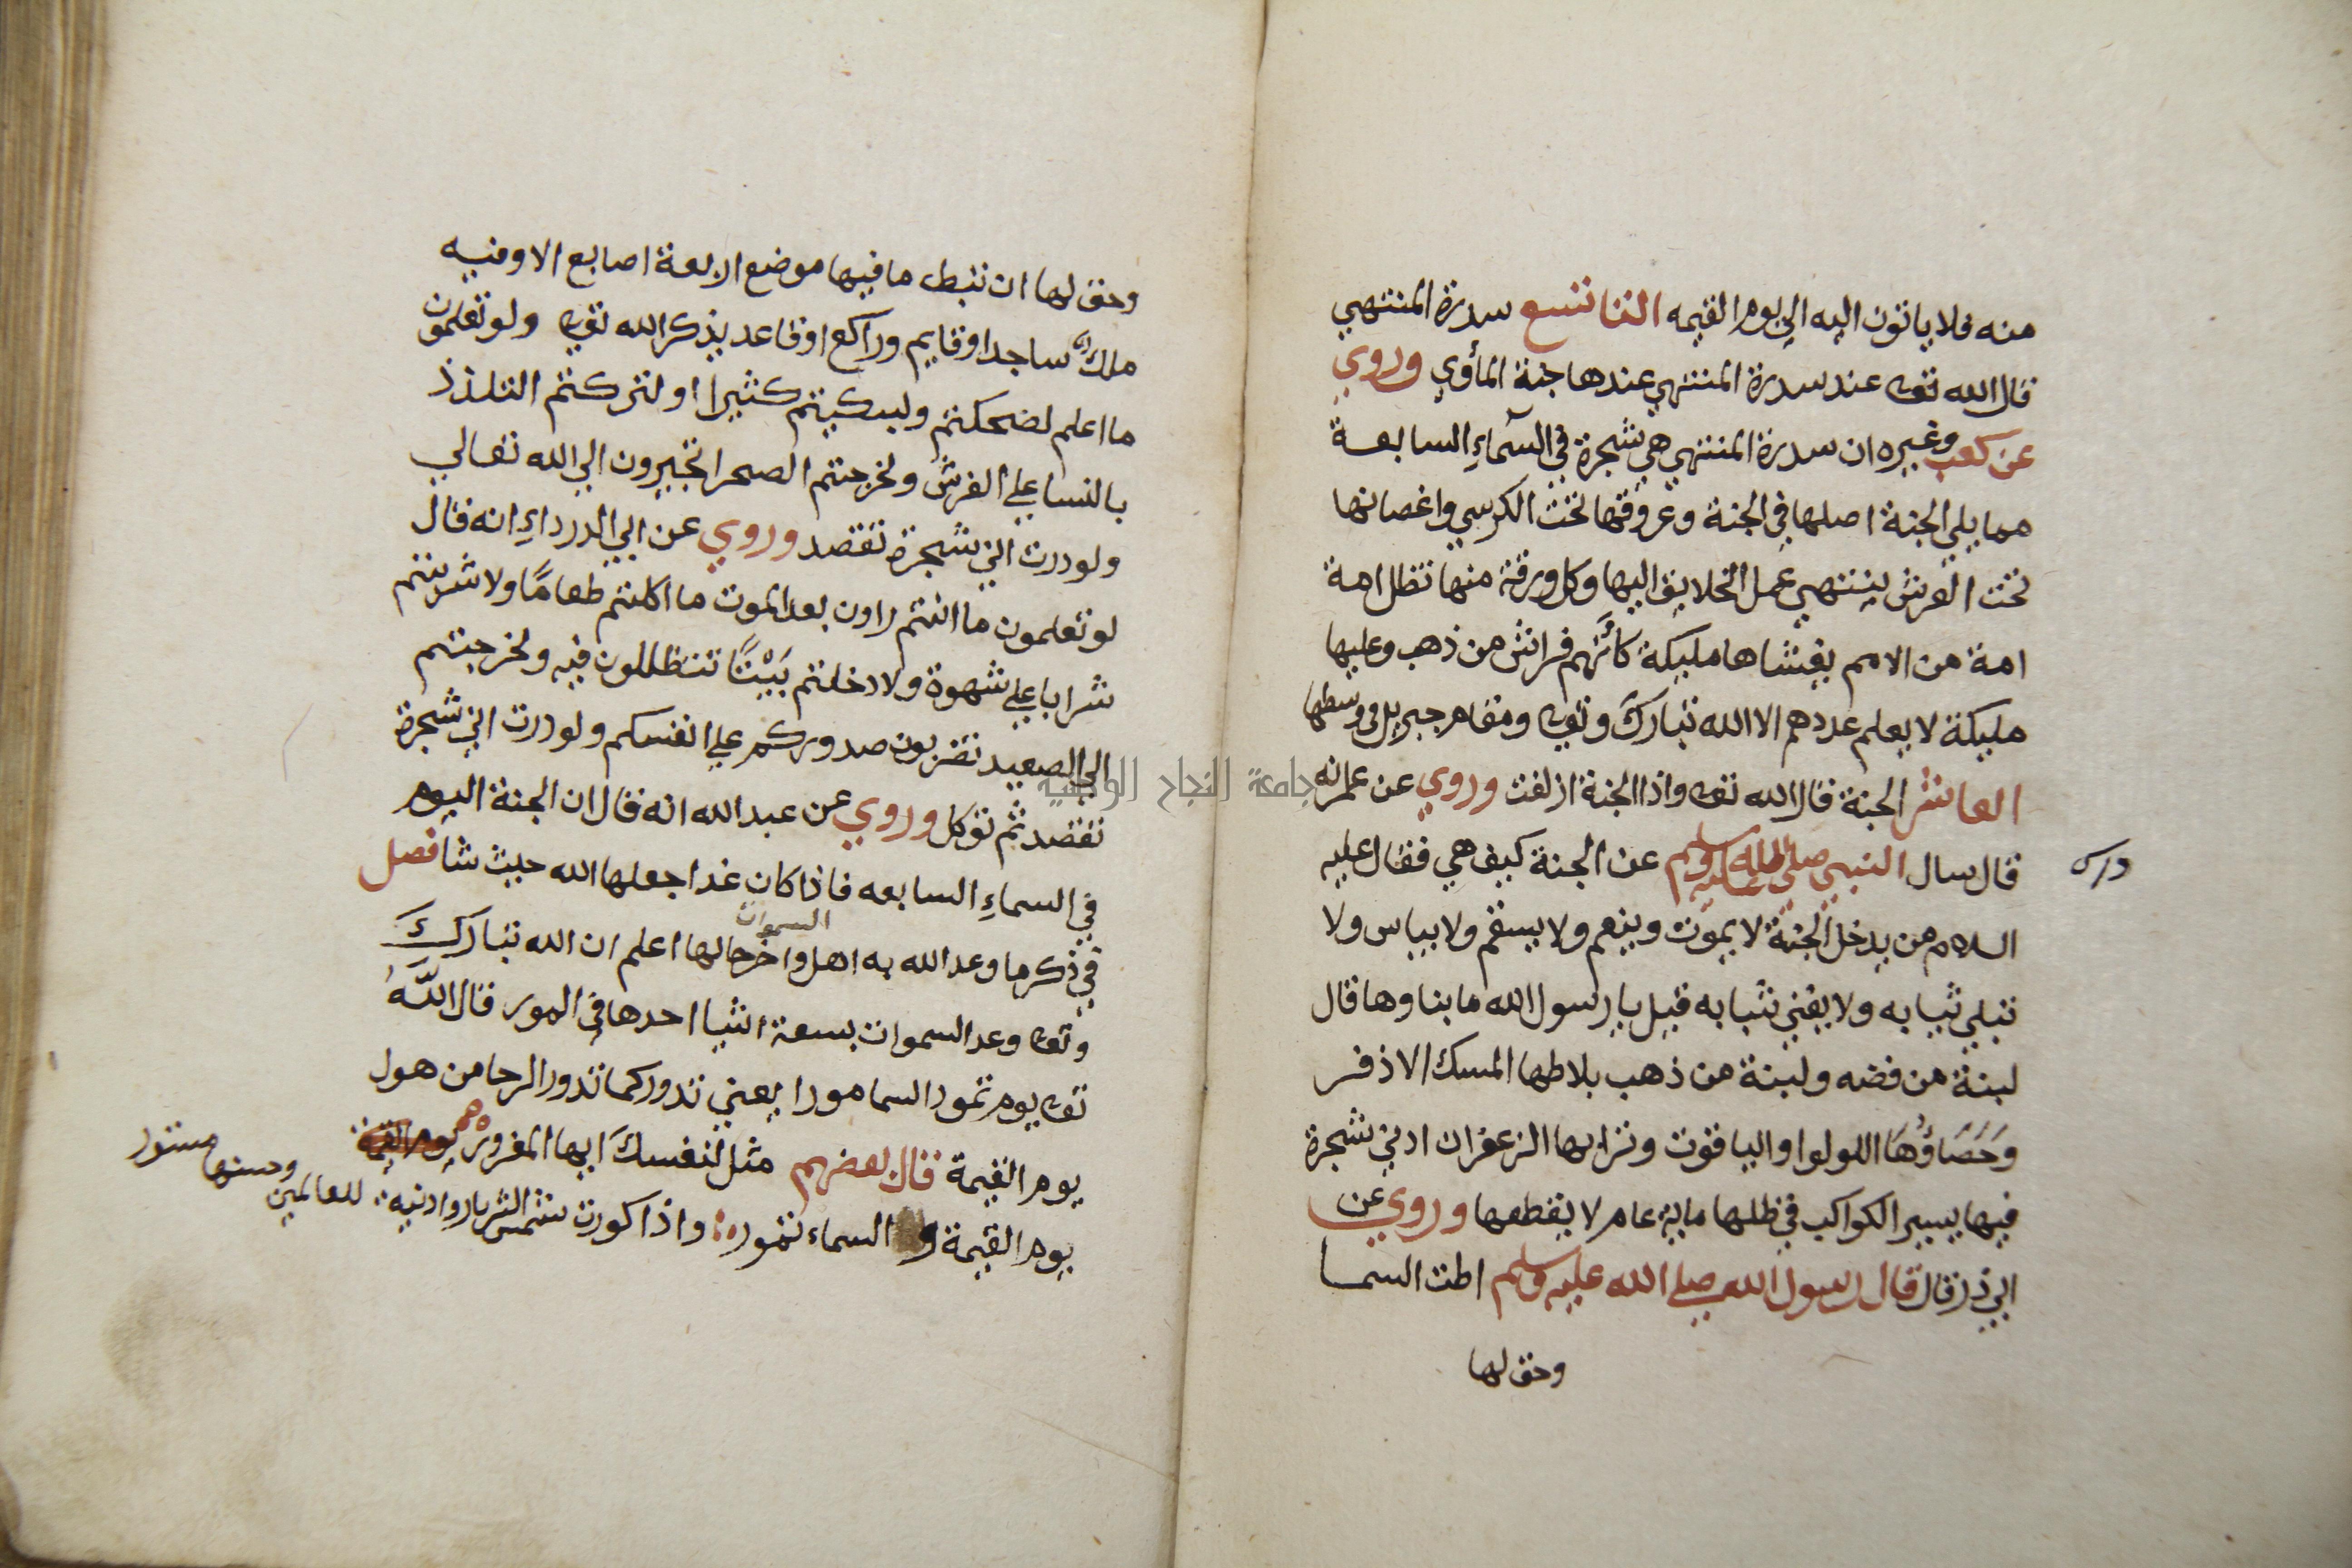 منه فلا ياتون اليه الي يوم القيمه التاسع سدرة المنتهي
قال الله تعه عند سدرة المنتهي عندها جنة المأوي وروي
عن كعب وغيره ان سدرة المنتهي هي شجرة في السمآءِ السابعة
مما يلي الجنة اصلها في الجنة وعروقها تحت الكرسي واغصانها
تحت العرش لينتهي عمل الخلايق اليها وكل ورقة منها تظل امة
امة من الامم يغشاها مليكة كأنهم فراش من ذهب وعليها
مليكة لا يعلم عددهم الا الله تبارك وتعه ومقام جبريل في وسطها
العاشر الجنة قال الله تعه واذا الجنة ازلفت وروي عن عمر انه
قال سال النبي صلي الله عليه وسلم عن الجنة كيف هي فقال عليه
السلام من يدخل الجنة لا يموت وينعم ولا يسقم ولا يباس ولا
تبلي ثيابه ولا يفني شبابه قيل يا رسول الله ما بناوها قال
لبنة من فضه ولبنة من ذهب بلاطها المسك الاذفر
وَحَصَاؤُهَا اللولوا والياقوت وترابها الزعفران ادني شجرة
فيها يسير الكواكب في ظلها ماية عام لا يقطعها وروي عن
ابي ذر قال قال رسول الله صلي الله عليه وسلم اطت السما
وحق لها
وحق لها ان تئط ما فيها موضع اربعة اصابع الا وفيه
ملك ساجد او قايم وراكع او قاعد يذكر الله تعه ولو تعلمون
ما اعلم لضحكتم ولبكيتم كثيرا او لتركتم التلذذ
بالنسا علي الفرش ولخرجتم الصحرا تجيرون الي الله تعالي
ولوددت اني شجرة تعضد وروي عن ابي الدرداءِ انه قال
لو تعلمون ما انتم راون بعد الموت ما اكلتم طعامًا ولا شربتم
شرابا علي شهوة ولا دخلتم بَيْتًا تتظللون فيه ولخرجتم
الي الصعيد تضربون صدوركم علي انفسكم ولوددت اني شجرة
تعضد ثم توكل وروي عن عبد الله انه قال ان الجنة اليوم
في السماءِ السابعه فاذا كان غدا جعلها الله حيث شا فصل
في ذكر ما وعد الله به اهل السموات واخرحالها اعلم ان الله تبارك
وتعه وعد السموات بسعة اشيا احدها في المور قال اللَّهُ
تعه يوم تمور السما مورا يعني تدور كما تدور الرحا من هول
يوم القيمة قال بعضهم مثل لنفسك ايها المغرور يوم القيمة
يوم القيمة والسماء تمور واذا كورت شمس النهار وادنيه للعالمين